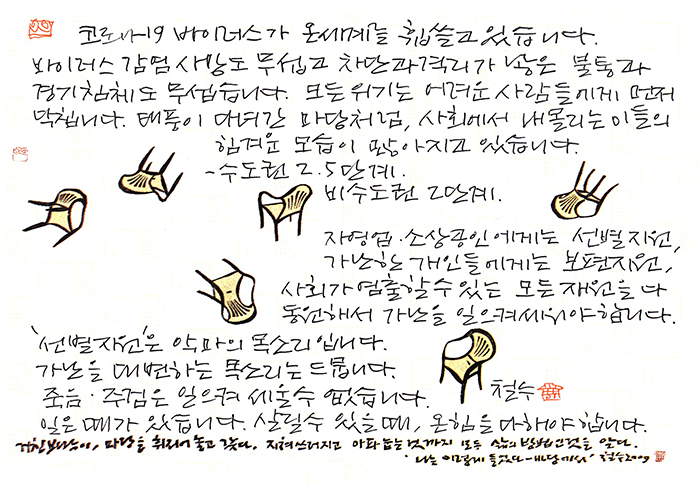 코로나-19 바이러스가 온세계를 휩쓸고 있습니다.
바이러스 감염 사망도 무섭고 차단과 격리가 낳은 불통과
경기침체도 무섭습니다. 모든 위기는 어려운 사람들에게 먼저
닥칩니다. 태풍이 다녀간 마당처럼, 사회에서 내몰리는 이들의
힘겨운 모습이 많아지고 있습니다.
-수도권 2.5단계.
비수도권 2단계.
자영업·소상공인에게는 선별지원,
가난한 개인들에게는 보편지원,
사회가 염출할 수 있는 모든 자원을 다
동원해서 가난을 일으켜 세워야 합니다.
'선별지원'은 악마의 목소리입니다.
가난을 대변하는 목소리는 드뭅니다.
죽음·주검은 일으켜 세울수 없습니다.
일은 때가 있습니다. 살릴수 있을 때, 온힘을 다해야 합니다.
철수
거친 바람이, 마당을 휘저어 놓고 갔다. 지쳐 쓰러지고 아파 눕는 것까지 모두 삶의 방법인 것을 알다.
'나는 이렇게 들었다-마당에서' 철수2009